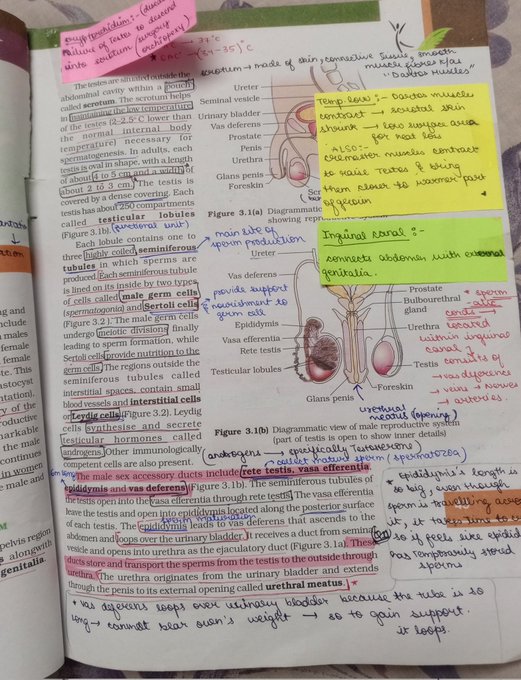 Cryptorchidism :- (due
failure of Testes to descend
into scrotum (surgery
orchiopexy)
→ 37°C
(34-35)°C
scrotum → made of skin, connective tissue, smooth
muscle fibres k/as
"Dartos Muscles"
The testes are situated outside the
abdominal cavity within a pouch
called scrotum. The scrotum helps
in maintaining the low temperature
of the testes (2–2.5° C lower than
the normal internal body
temperature) necessary for
spermatogenesis. In adults, each
testis is oval in shape, with a length
of about 4 to 5 cm and a width of
about 2 to 3 cm. The testis is
covered by a dense covering. Each
testis has about 250 compartments
called testicular lobules
(Figure 3.1b). (functional unit)
Each lobule contains one to
three highly coiled seminiferous
tubules in which sperms are
produced. Each seminiferous tubule
is lined on its inside by two types
of cells called male germ cells
(spermatogonia) and Sertoli cells
(Figure 3.2 ). The male germ cells
undergo meiotic divisions finally
leading to sperm formation, while
Sertoli cells provide nutrition to the
germ cells. The regions outside the
seminiferous tubules called
interstitial spaces, contain small
blood vessels and interstitial cells
or Leydig cells (Figure 3.2). Leydig
cells synthesise and secrete
testicular hormones called
androgens. Other immunologically
competent cells are also present.
Ureter
Seminal vesicle
Urinary bladder
Vas deferens
Prostate
Penis
Urethra
Glans penis
Foreskin
Temp. low :- Dartos muscles
contract → scrotal skin
shrunk → low surface area
for heat loss
ALSO :-
cremaster muscles contract
to raise Testes & bring
them closer to warmer part
of groin
Figure 3.1(a) Diagrammatic
showing reproductive system
main site of
sperm production
Inguinal canal :-
connects abdomen with external
genitalia.
Ureter
Vas deferens
provide support
& nourishment to
germ cell
Epididymis
Vasa efferentia
Rete testis
Testicular lobules
Glans penis
Prostate
Bulbourethral
gland
Urethra
Testis
Foreskin
* sperm
cords →
located
within inguinal
canal &
consists of
→ vas deferens
→ veins + nerves
→ arteries.
urethral
meatus (opening)
Figure 3.1(b) Diagrammatic view of male reproductive system
(part of testis is open to show inner details)
(androgens → specifically Testosterone)
collect mature sperm (spermatozoa)
The male sex accessory ducts include rete testis, vasa efferentia,
epididymis and vas deferens (Figure 3.1b). The seminiferous tubules of
the testis open into the vasa efferentia through rete testis. The vasa efferentia
leave the testis and open into epididymis located along the posterior surface
sperm maturation
of each testis. The epididymis leads to vas deferens that ascends to the
abdomen and loops over the urinary bladder. It receives a duct from seminal
vesicle and opens into urethra as the ejaculatory duct (Figure 3.1a). These
ducts store and transport the sperms from the testis to the outside through
urethra. The urethra originates from the urinary bladder and extends
through the penis to its external opening called urethral meatus.
* Epididymis's length is
so big, even though
sperm is travelling across
it, it takes time to
so it feels like epidid
has temporarily stored
sperms
* vas deferens loops over urinary bladder because the tube is so
long → cannot bear own's weight → so to gain support.
it loops.
pelvis region
along with
genitalia.